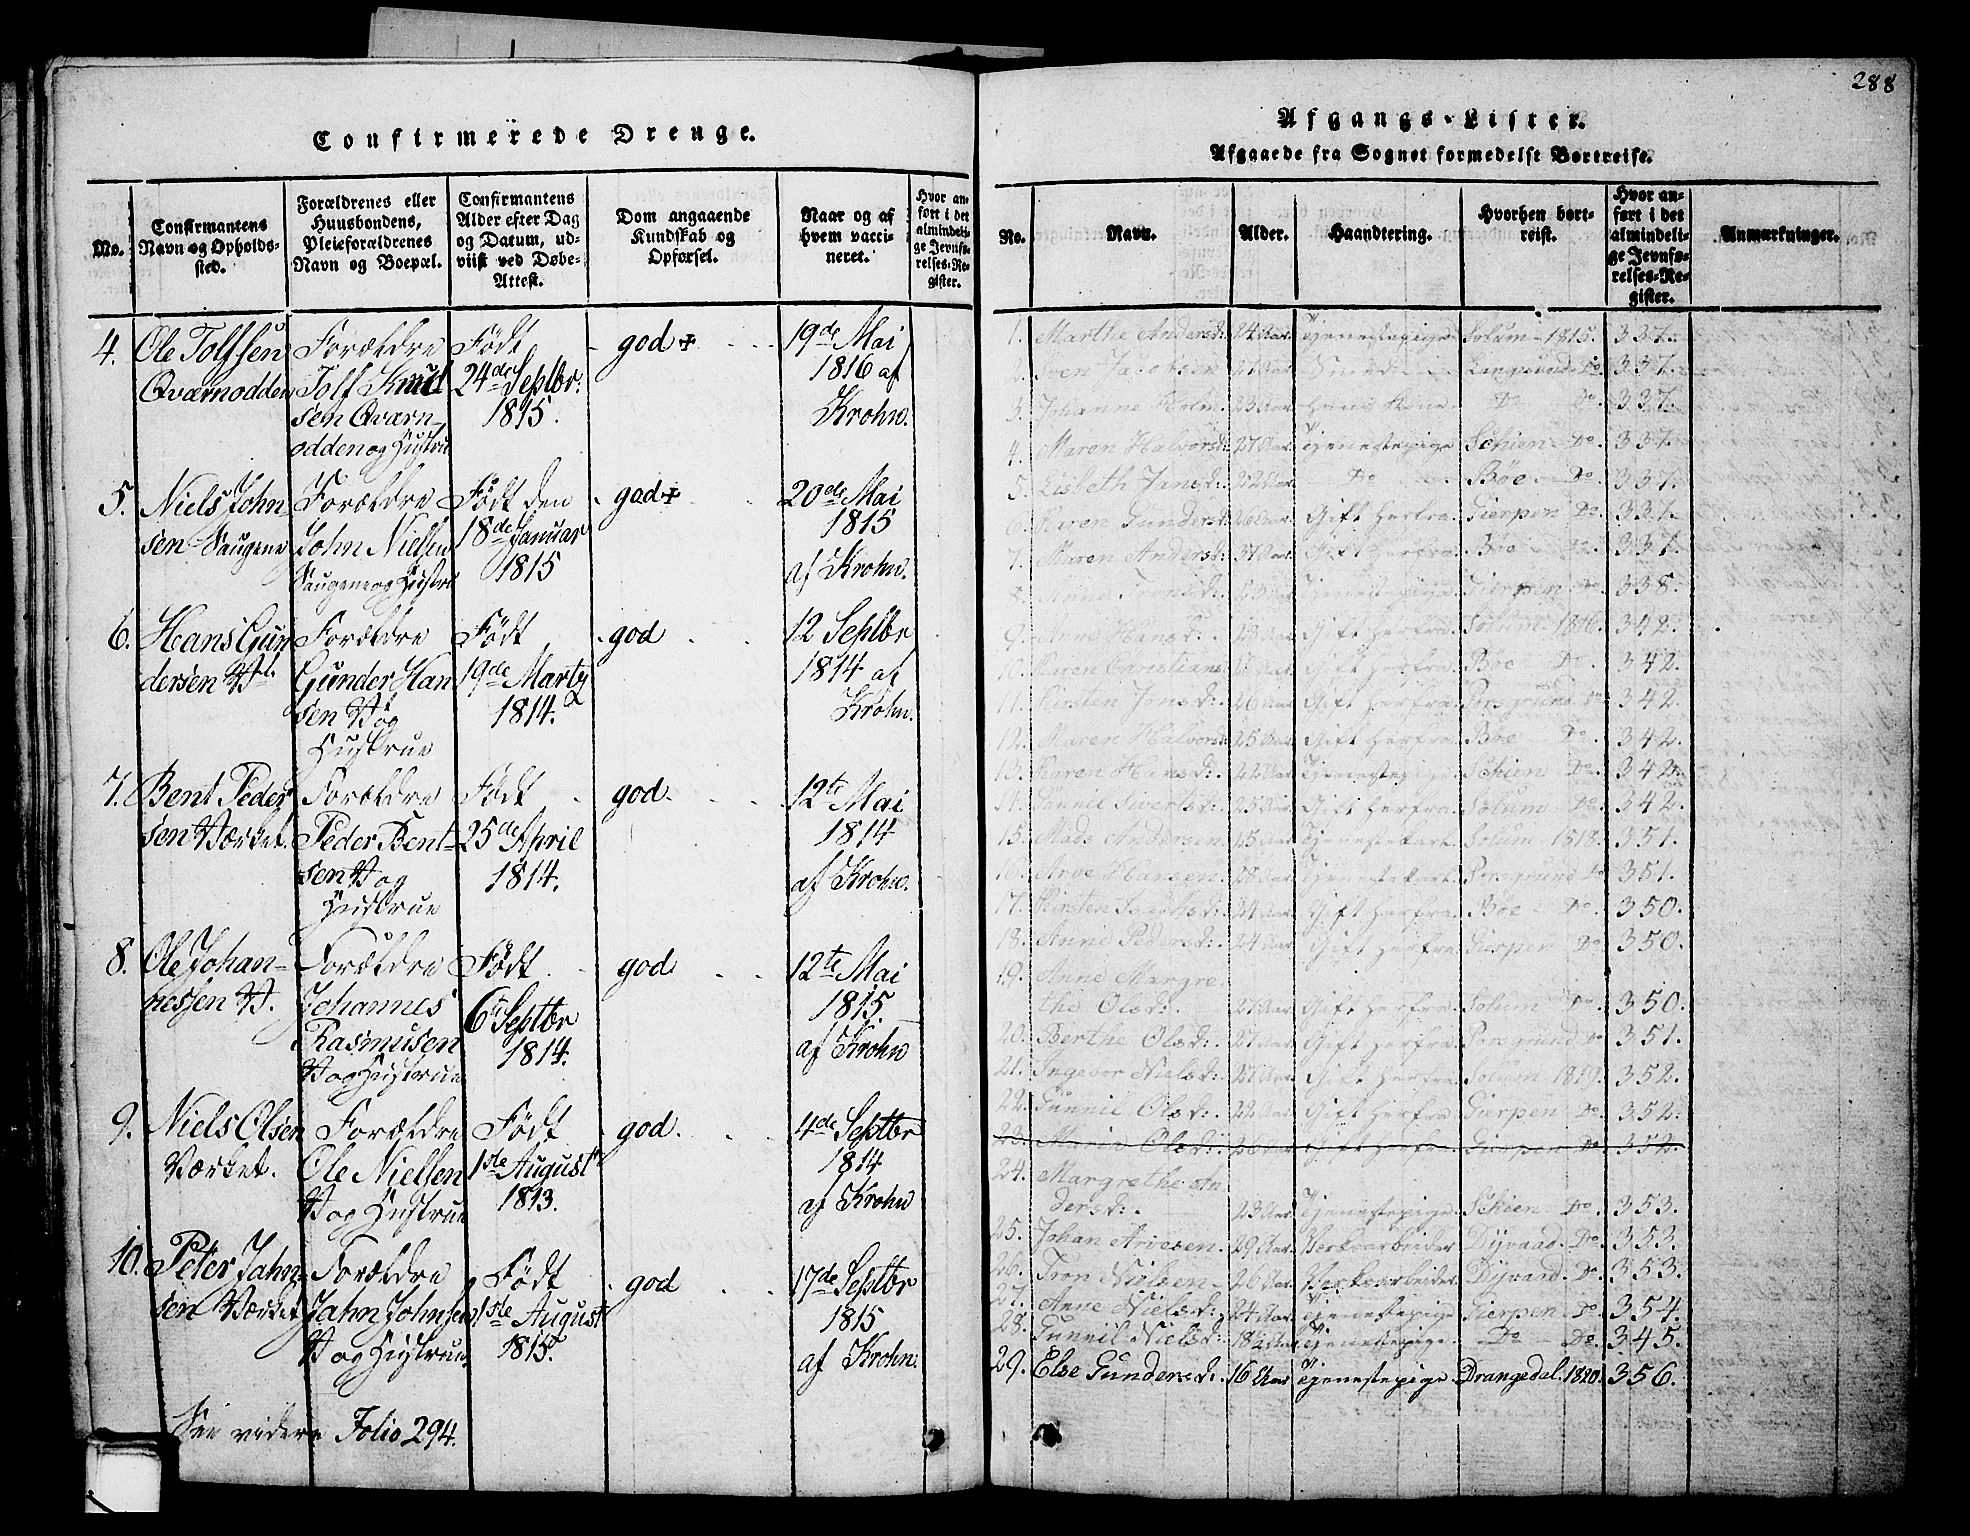 Confirmerede Drenge.
No.
Confirmantens Navn og Opholdssted.
Forældrenes eller Huusbondens, Pleieforældrenes Navn og Boepæl.
Confirmantens Alder efter Dag og Datum, udviist ved Døbe-Attest.
Dom angaaende Kundskab og Opførsel.
Naar og af hvem vaccineret.
Hvor anført i det almindelige Jevnførelses-Register.
4. Ole Tolfsen Forældre Født god + 19de Mai
Qværnodden Tolf Knud 24de Septbr. 1816 af
sen Qværn- 1815. Krohn.
odden og Hustru
5. Niels John- Forældre Født den god + 20de Mai
sen Saugene John Nielsen 18de Januar 1815
Saugene og Hustru 1815 af Krohn.
6. Hans Gun Forældre Født god 12 Septbr
dersen Gunder Han 19de Marty 1814 af
sen og 1814. Krohn.
Hustrue
7. Bent Peder Forældre Født god. 12te Mai
sen Værket. Peder Bent- 25de April 1814
sen og 1814. af Krohn.
Hustrue
8. Ole Johan- Forældre Født god 12te Mai
nessen V. Johannes 6te Septbr 1815.
Rasmusen 1814. af Krohn
V og Hustrue
9. Niels Olsen Forældre Født god. 4de Septbr
Værket. Ole Nielsen 1ste August 1814
V og Hustrue 1813. af Krohn
10. Peter Jahn- Forældre Født god 17de Septbr
sen Værket Jahn Johnsen 1ste August 1815
V og Hustrue 1815. af Krohn.
See videre Folio 294.
288
Afgangs-Lister.
Afgaaede fra Sognet formedelst Bortreise.
No.
Navn.
Alder.
Haandtering.
Hvorhen bortreist.
Hvor anført i det almindelige Jevnførelses-Register.
Anmærkninger.
1. Marthe Andersd: 24 Aar. Tjenestepige Solum 1815. 337.
2. Sven Jacobsen 27 Aar. Langesund Do 337.
3. Johanne Holm 23 Aar. Hans Kone Do Do. 337.
4. Maren Halvorsd: 27 Aar. Tjenestepige Schien Do. 337.
5. Lisbeth Jansd: 22 Aar. Do Bøe Do. 337.
6. Karen Gundersd: 26 Aar. Gift herfra Gierpen Do. 337.
7. Maren Andersd: 37 Aar. Gift herfra Bøe Do. 337.
8. Anne Tronsd: 23 Aar. Tjenestepige Gierpen Do. 338.
9. Hansd: 23 Aar. Gift herfra Solum 1816. 342.
10. Karen Christians Aar. Gift herfra Bøe Do. 342.
11. Kirsten Jonsd: 26 Aar. Gift herfra Porsgrund Do 342.
12. Maren Halvorsd: 25 Aar. Gift herfra Bøe Do. 342.
13. Karen Hansd: 22 Aar. Tjenestepige Schien Do 342.
14. Gunnil Siversd: 25 Aar. Gift herfra Solum Do. 342.
15. Mads Andersen 45 Aar. Tjenestekarl Solum 1818. 351.
16. Arve Hansen 28 Aar. Tjenestekarl Porsgrund Do 351.
17. Kirsten 24 Aar. Gift herfra Bøe Do. 350.
18. Anne Pedersd: 24 Aar. Gift herfra Gierpen Do 350.
19. Anne Margre
the Olsd: 27 Aar. Gift herfra Solum Do. 350.
20. Berthe Olsd: 27 Aar. Gift herfra Porsgrund Do 351.
21. Ingebor Nielsd: 27 Aar. Gift herfra Solum 1819. 352.
22. Gunnil Olsd: 22 Aar. Gift herfra Gierpen Do. 352.
23. Maria Olsd: 26 Aar. Gift herfra Gierpen Do 352.
24. Margrethe An
dersd: 23 Aar. Tjenestepige Schien Do. 353.
25. Johan Arvesen. 29 Aar. Værksarbeider Dijvaad. Do. 353.
26. Tron Nielsen 26 Aar. Værksarbeider Dijvaad. Do. 353.
27. Anne Nielsd: 24 Aar. Tjenestepige Gierpen Do. 354.
28. Gunnil Nielsd: 18½ Aar Tjenestepige Do Do. 345.
29. Else Gundersd: 16 Aar Tjenestepige Drangedal. 1820. 356.